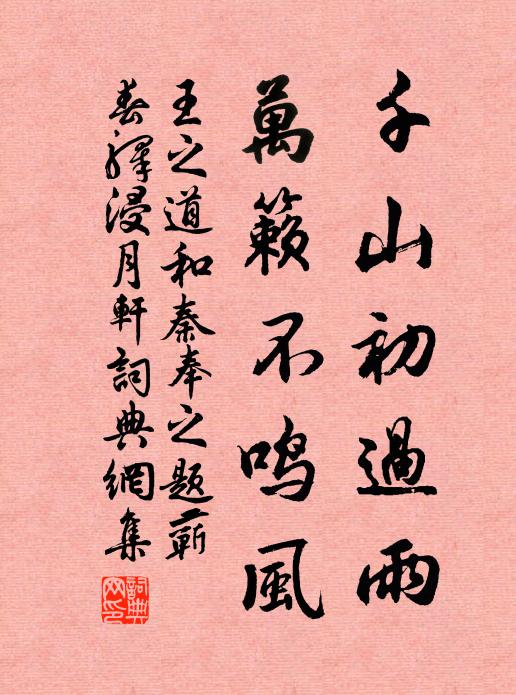 千山初過雨
萬籟不鳴風
王之道和秦奉之題蘄
春驛浸月軒詞典網集
詞典網印